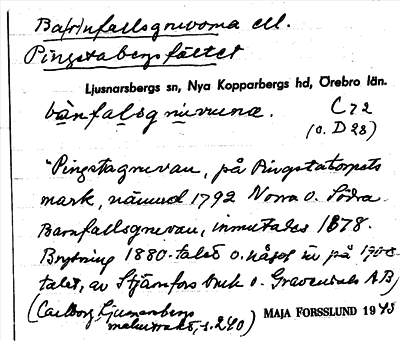 Ba(r)nfallsgruvorna ell.
Pingstabergsfältet
Ljusnarsbergs sn, Nya Kopparbergs hd, Örebro län.
bànfalsgruvuna.
C 72
(o. D 28)
"Pingstagruvan, på Pingstatorpets
mark, nämnd 1792 Norra o. Södra
Barnfallsgruvan, inmutades 1878.
Brytning 1880-talet o. något in på 1900-
talet, av Stjärnfors bruk o. Gravendals AB
(Carlborg, Ljusnarsbergs
malmtrakt, s. 240)
MAJA FORSSLUND 1945